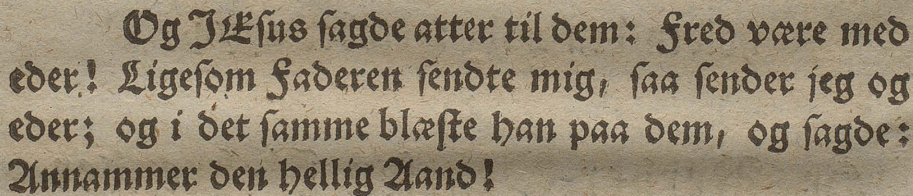 Og JEsus sagde atter til dem: Fred være med
eder! Ligesom Faderen sendte mig, saa sender jeg og
eder; og i det samme blæste han paa dem, og sagde:
Annammer den hellig Aand!